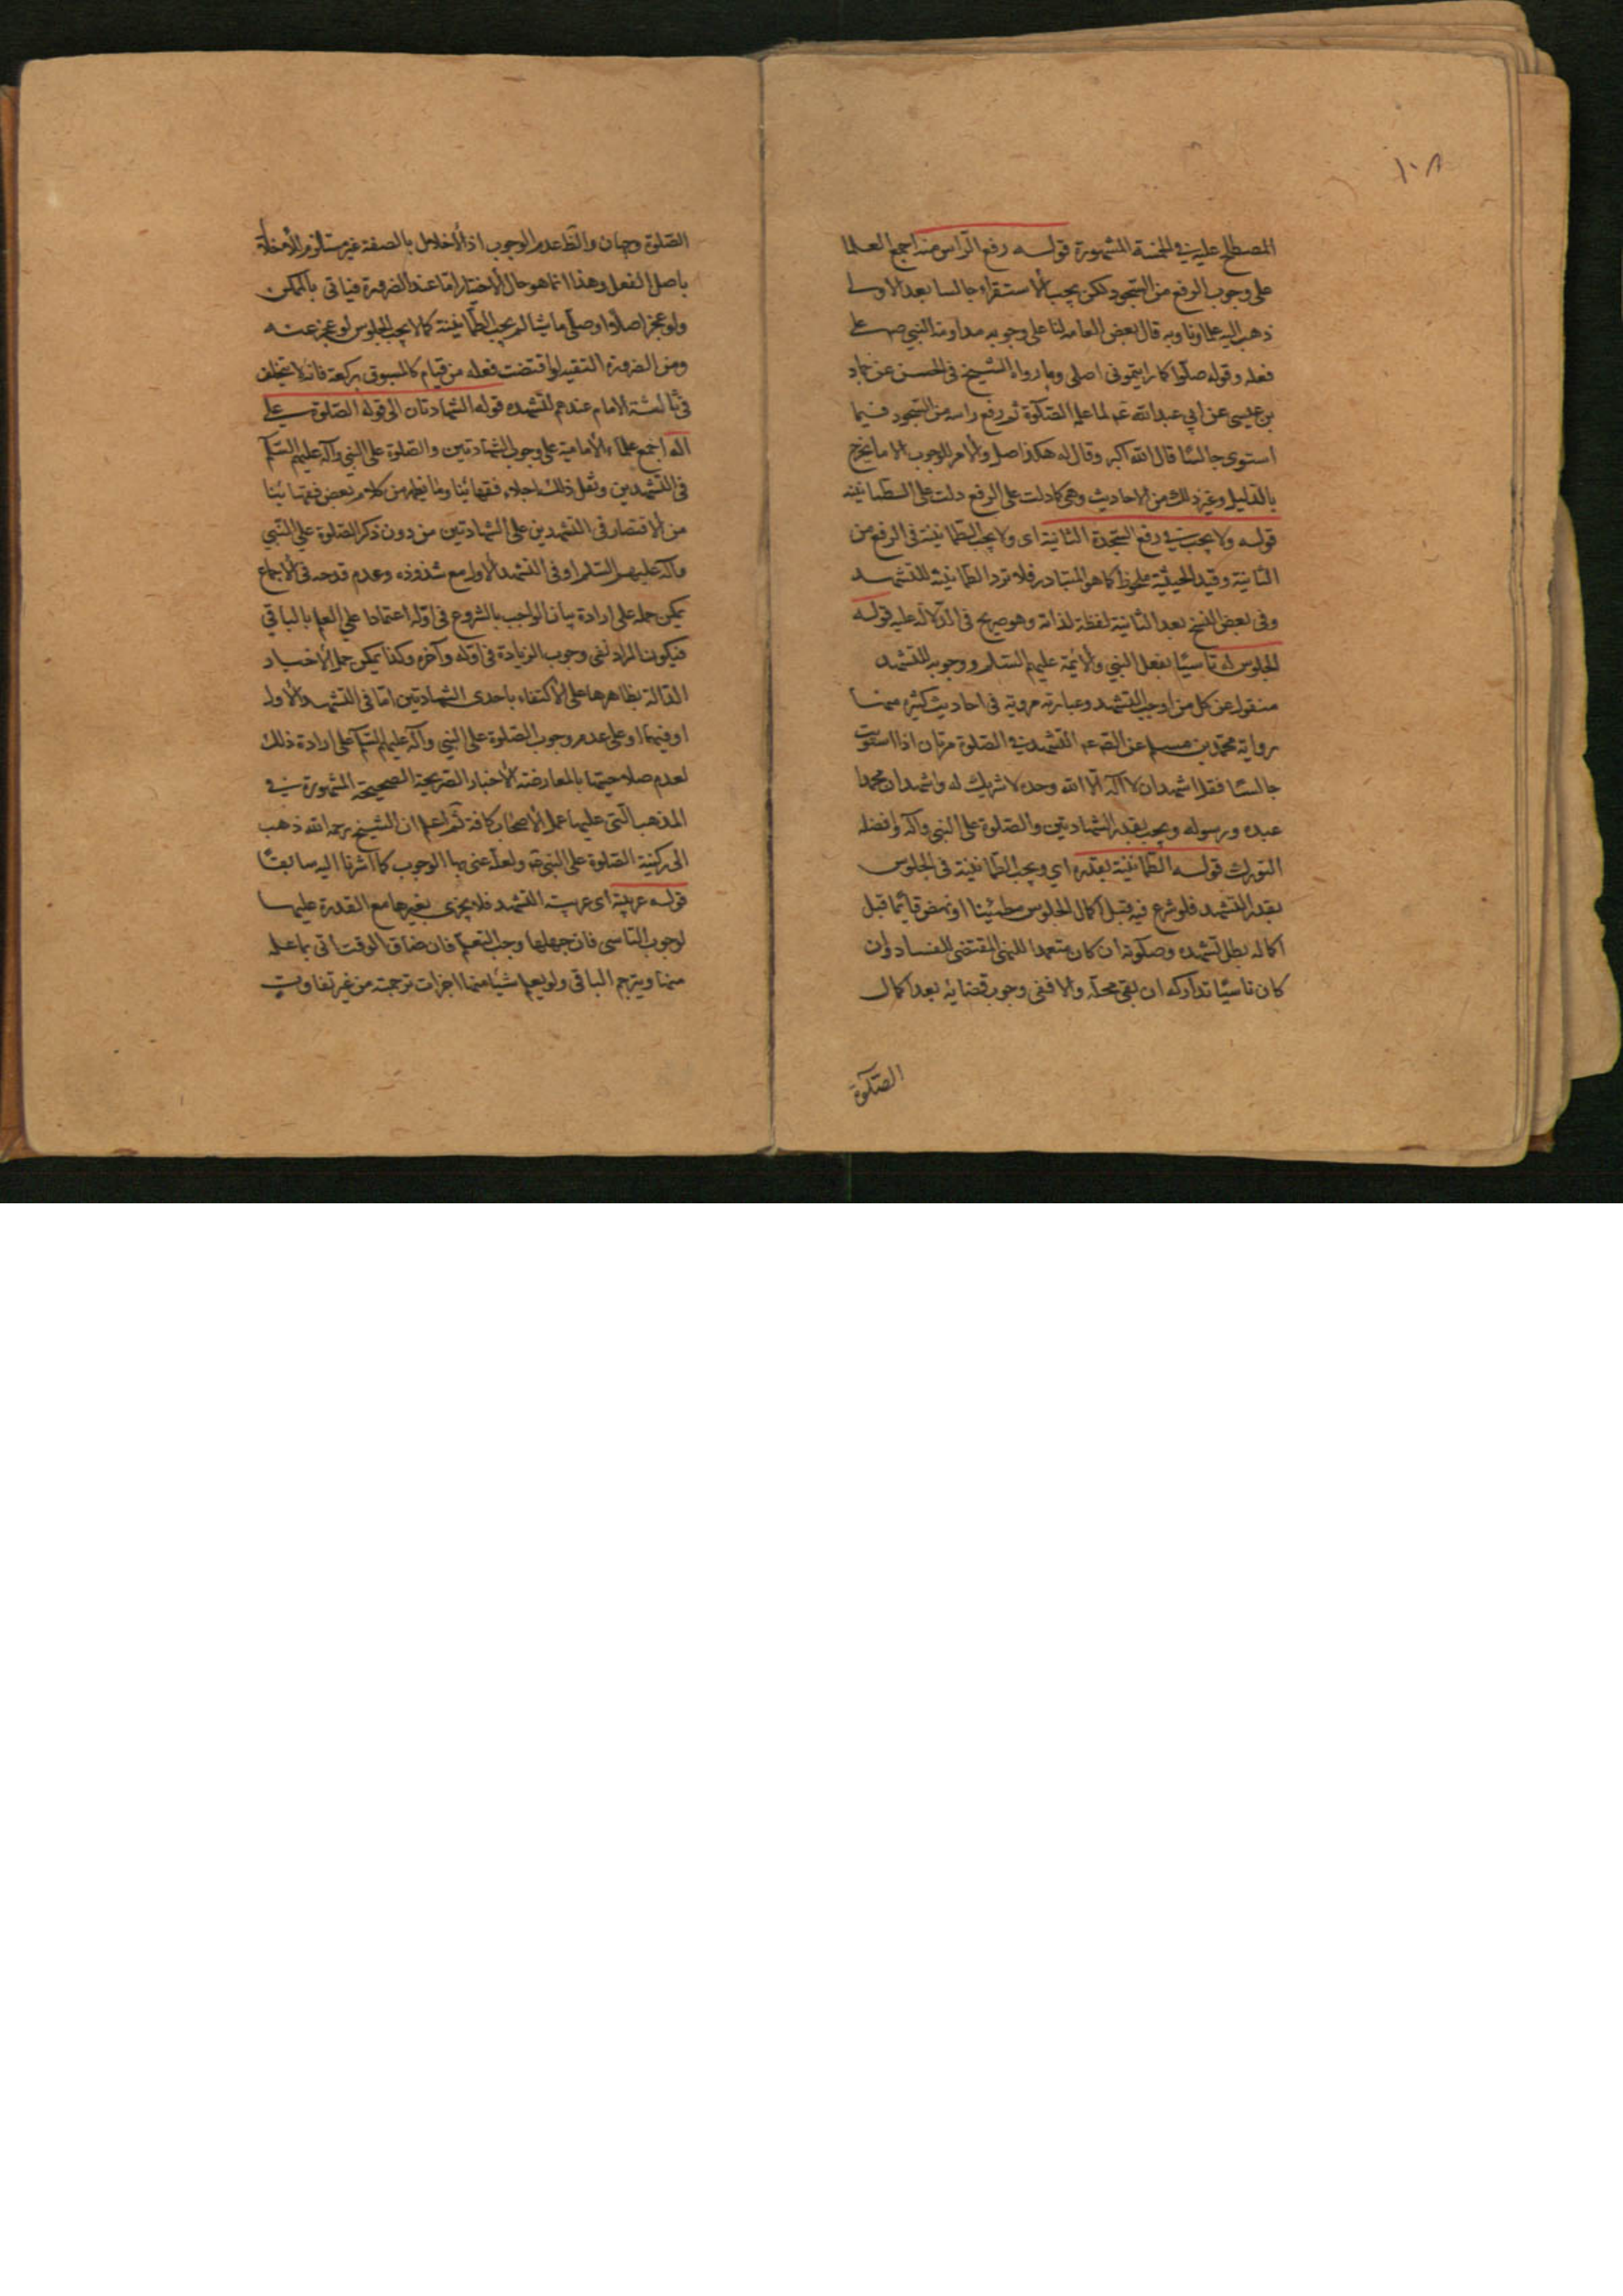 ١٠٨
المصطلح عليه في الخمسة المشهورة قوله رفع الراس منه اجمع العلما
على وجوب الرفع من السجود لكن يجب الاستقرار جالسا بعد الاولى
ذهب اليه علماونا وبه قال بعض العامه لنا على وجوبه مداومة النبي ص على
فعله وقوله صلوا كما رايتموني اصلي وما رواه الشيخ في الحسن عن حماد
بن عيسى عن ابي عبدالله ع لما علمه الصلوة ثم رفع راسه من السجود فلما
استوى جالسًا قال الله اكبر وقال له هكذا صل والامر للوجوب الا ما يخرج
بالدليل وغير ذلك من الاحاديث وهي كما دلت على الرفع دلت على الطمانينه
قوله ولا يجب في رفع السجدة الثانية اى ولا يجب الطمانينة في الرفع من
الثانية وقيد الحيثية ملحوظ كما هو المتبادر فلا ترد الطمانينة للتشهد
وفى بعض النسخ بعد الثانية لفظة لذاته وهو صريح في الدلاله عليه قوله
الجلوس له تاسيًا بفعل النبي والائمة عليهم السلم ووجوبه للتشهد
منقول عن كل من اوجب التشهد وعبارته مروية في احاديث كثيره منها
رواية محمد بن مسلم عن الصـ ع التشهد في الصلوة مرتان اذا استويت
جالسًا فقل اشهد ان لا اله الا الله وحده لا شريك له واشهد ان محمدا
عبده ورسوله ويجب بقدر الشهادتين والصلوة على النبى واله وافضله
التورك قوله الطمانينة بقدره اي ويجب الطمانينة فى الجلوس
بقدر التشهد فلو شرع فيه قبل اكمال الجلوس مطمئينا او نهض قائما قبل
اكماله بطل تشهده وصلوته ان كان متعمدا للنهى المقتضى للفساد وان
كان ناسيًا تداركه ان بقى محله والا ففى وجوب قضائه بعد اكمال
الصلوة
الصلوة وجهان والظ عدم الوجوب اذ الاخلال بالصفة غير مستلزم للاخلال
باصل الفعل وهذا انما هو حال الاختيار اما عند الضرورة فياتى بالممكن
ولو عجز اصلا او صلى ماشيا لم يجب الطمانينة كما لا يجب الجلوس لو عجز عنه
ومن الضرورة التقيه لو اقتضت فعله من قيام كالمسبوق بركعة فانه لا يتخلف
في ثالثة الامام عندهم لتشهده قوله الشهادتان الى قوله الصلوة على
اله اجمع علماء الامامية على وجوب الشهادتين والصلوة على النبي وآله عليهم السلم
فى التشهدين ونقل ذلك اجلاء فقهائنا وما يظهر من كلام بعض فقهائنا
من الاقتصار فى التشهدين على الشهادتين من دون ذكر الصلوة على النبي
وآله عليهم السلم او فى التشهد الاول مع شذوذه وعدم قدحه فى الاجماع
يمكن حمله على ارادة بيان الواجب بالشروع فى اوله اعتمادا على العلم بالباقي
فيكون المراد نفى وجوب الزيادة فى اوله وآخره وكذا يمكن حمل الاخبار
الدالة بظاهرها على الاكتفاء باحدى الشهادتين اما فى التشهد الاول
او فيهما او على عدم وجوب الصلوة على النبي وآله عليهم السلم على ارادة ذلك
لعدم صلاحيتها بالمعارضة الاخبار الصريحة الصحيحة المشهورة في
المذهب التى عليها عمل الاصحاب كافة ثم اعلم ان الشيخ رحمه الله ذهب
الى ركنية الصلوة على النبي ص ولعله عنى بها الوجوب كما اشرنا اليه سابقًا
قوله عربية اى عربية التشهد فلا يجزى بغيرها مع القدرة عليها
لوجوب التاسى فان جهلها وجب التعلم فان ضاق الوقت اتى بما علمه
منها ويترجم الباقى ولو لم يعلم شيئا منها اجزات ترجمته من غير تفاوت